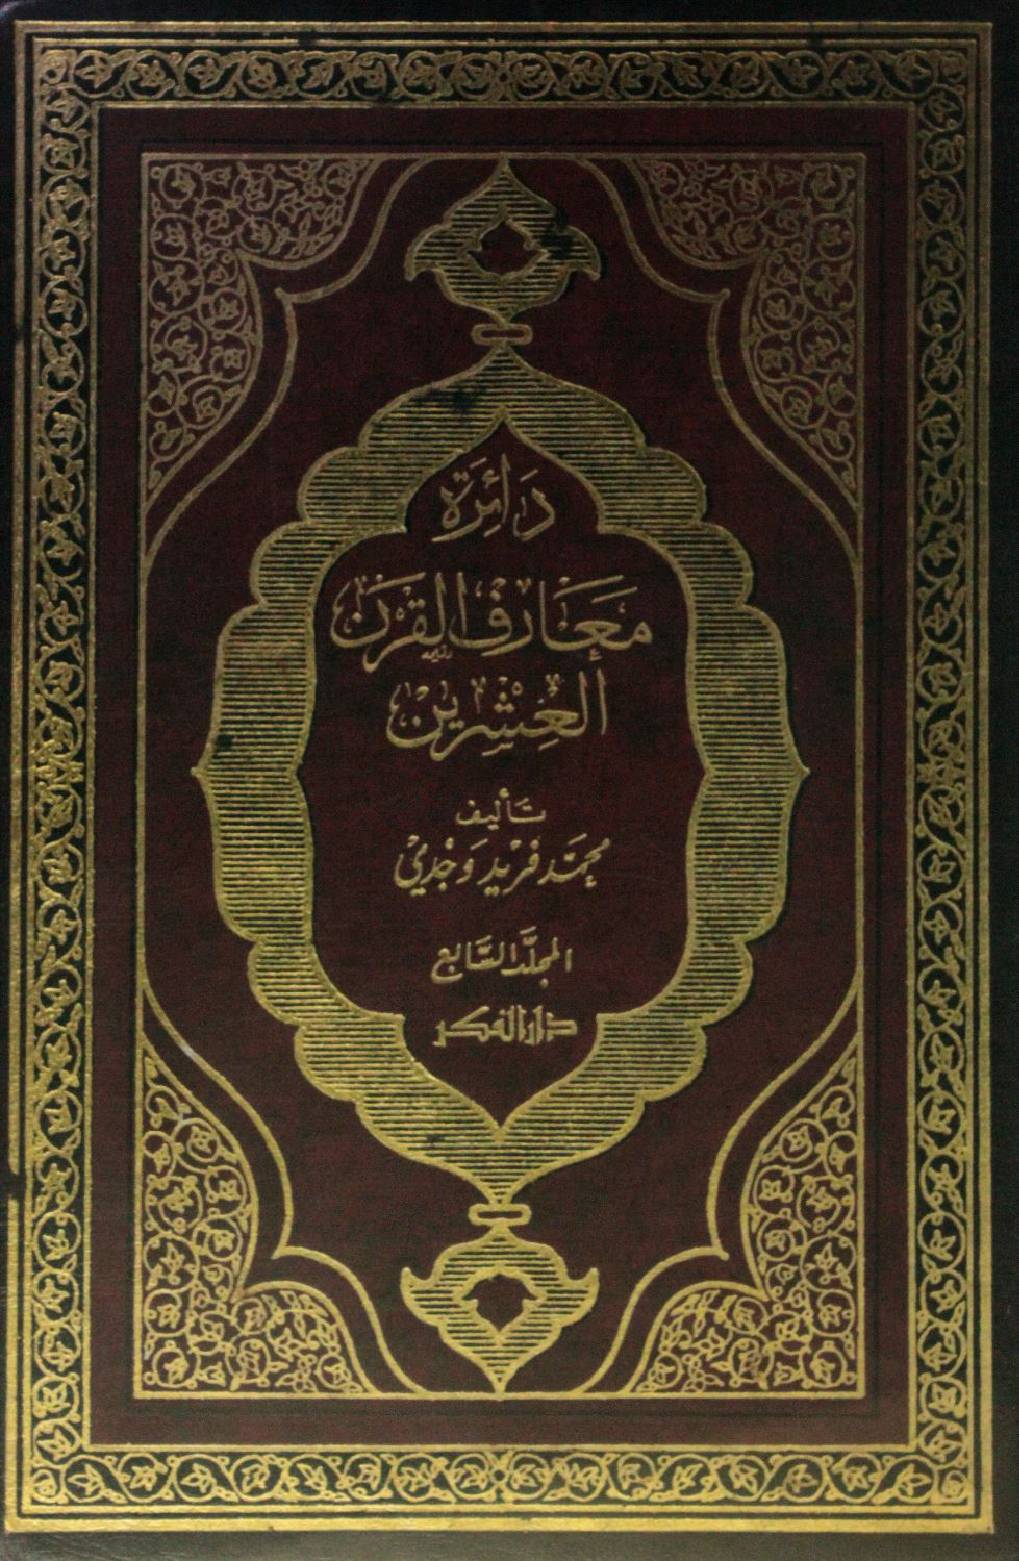 دائرة
معارف القرن
العشرين
تأليف
محمد فريد وجدي
المجلد السابع
دار الفكر